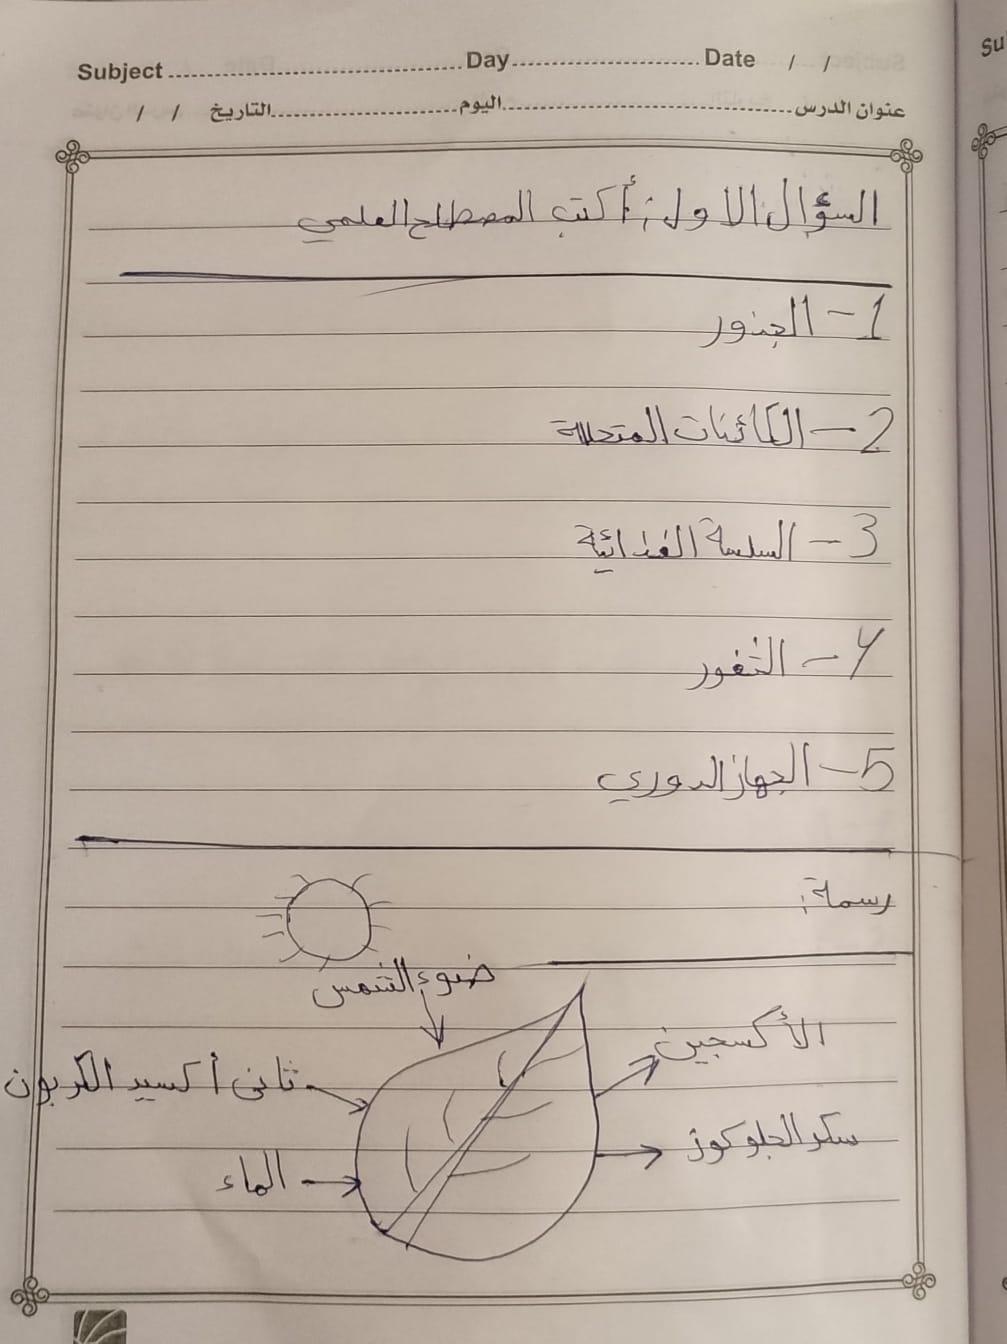 Subject ........ Day ........ Date / /
عنوان الدرس ........ اليوم ........ التاريخ / /
السؤال الاول: أكتب المصطلح العلمي
1- الجذور
2- الكائنات المتحللة
3- السلسة الغذائية
4- الثغور
5- الجهاز الدوري
رسمة:
ضوء الشمس
الأكسجين
ثانى أكسيد الكربون
سكر الجلوكوز
الماء